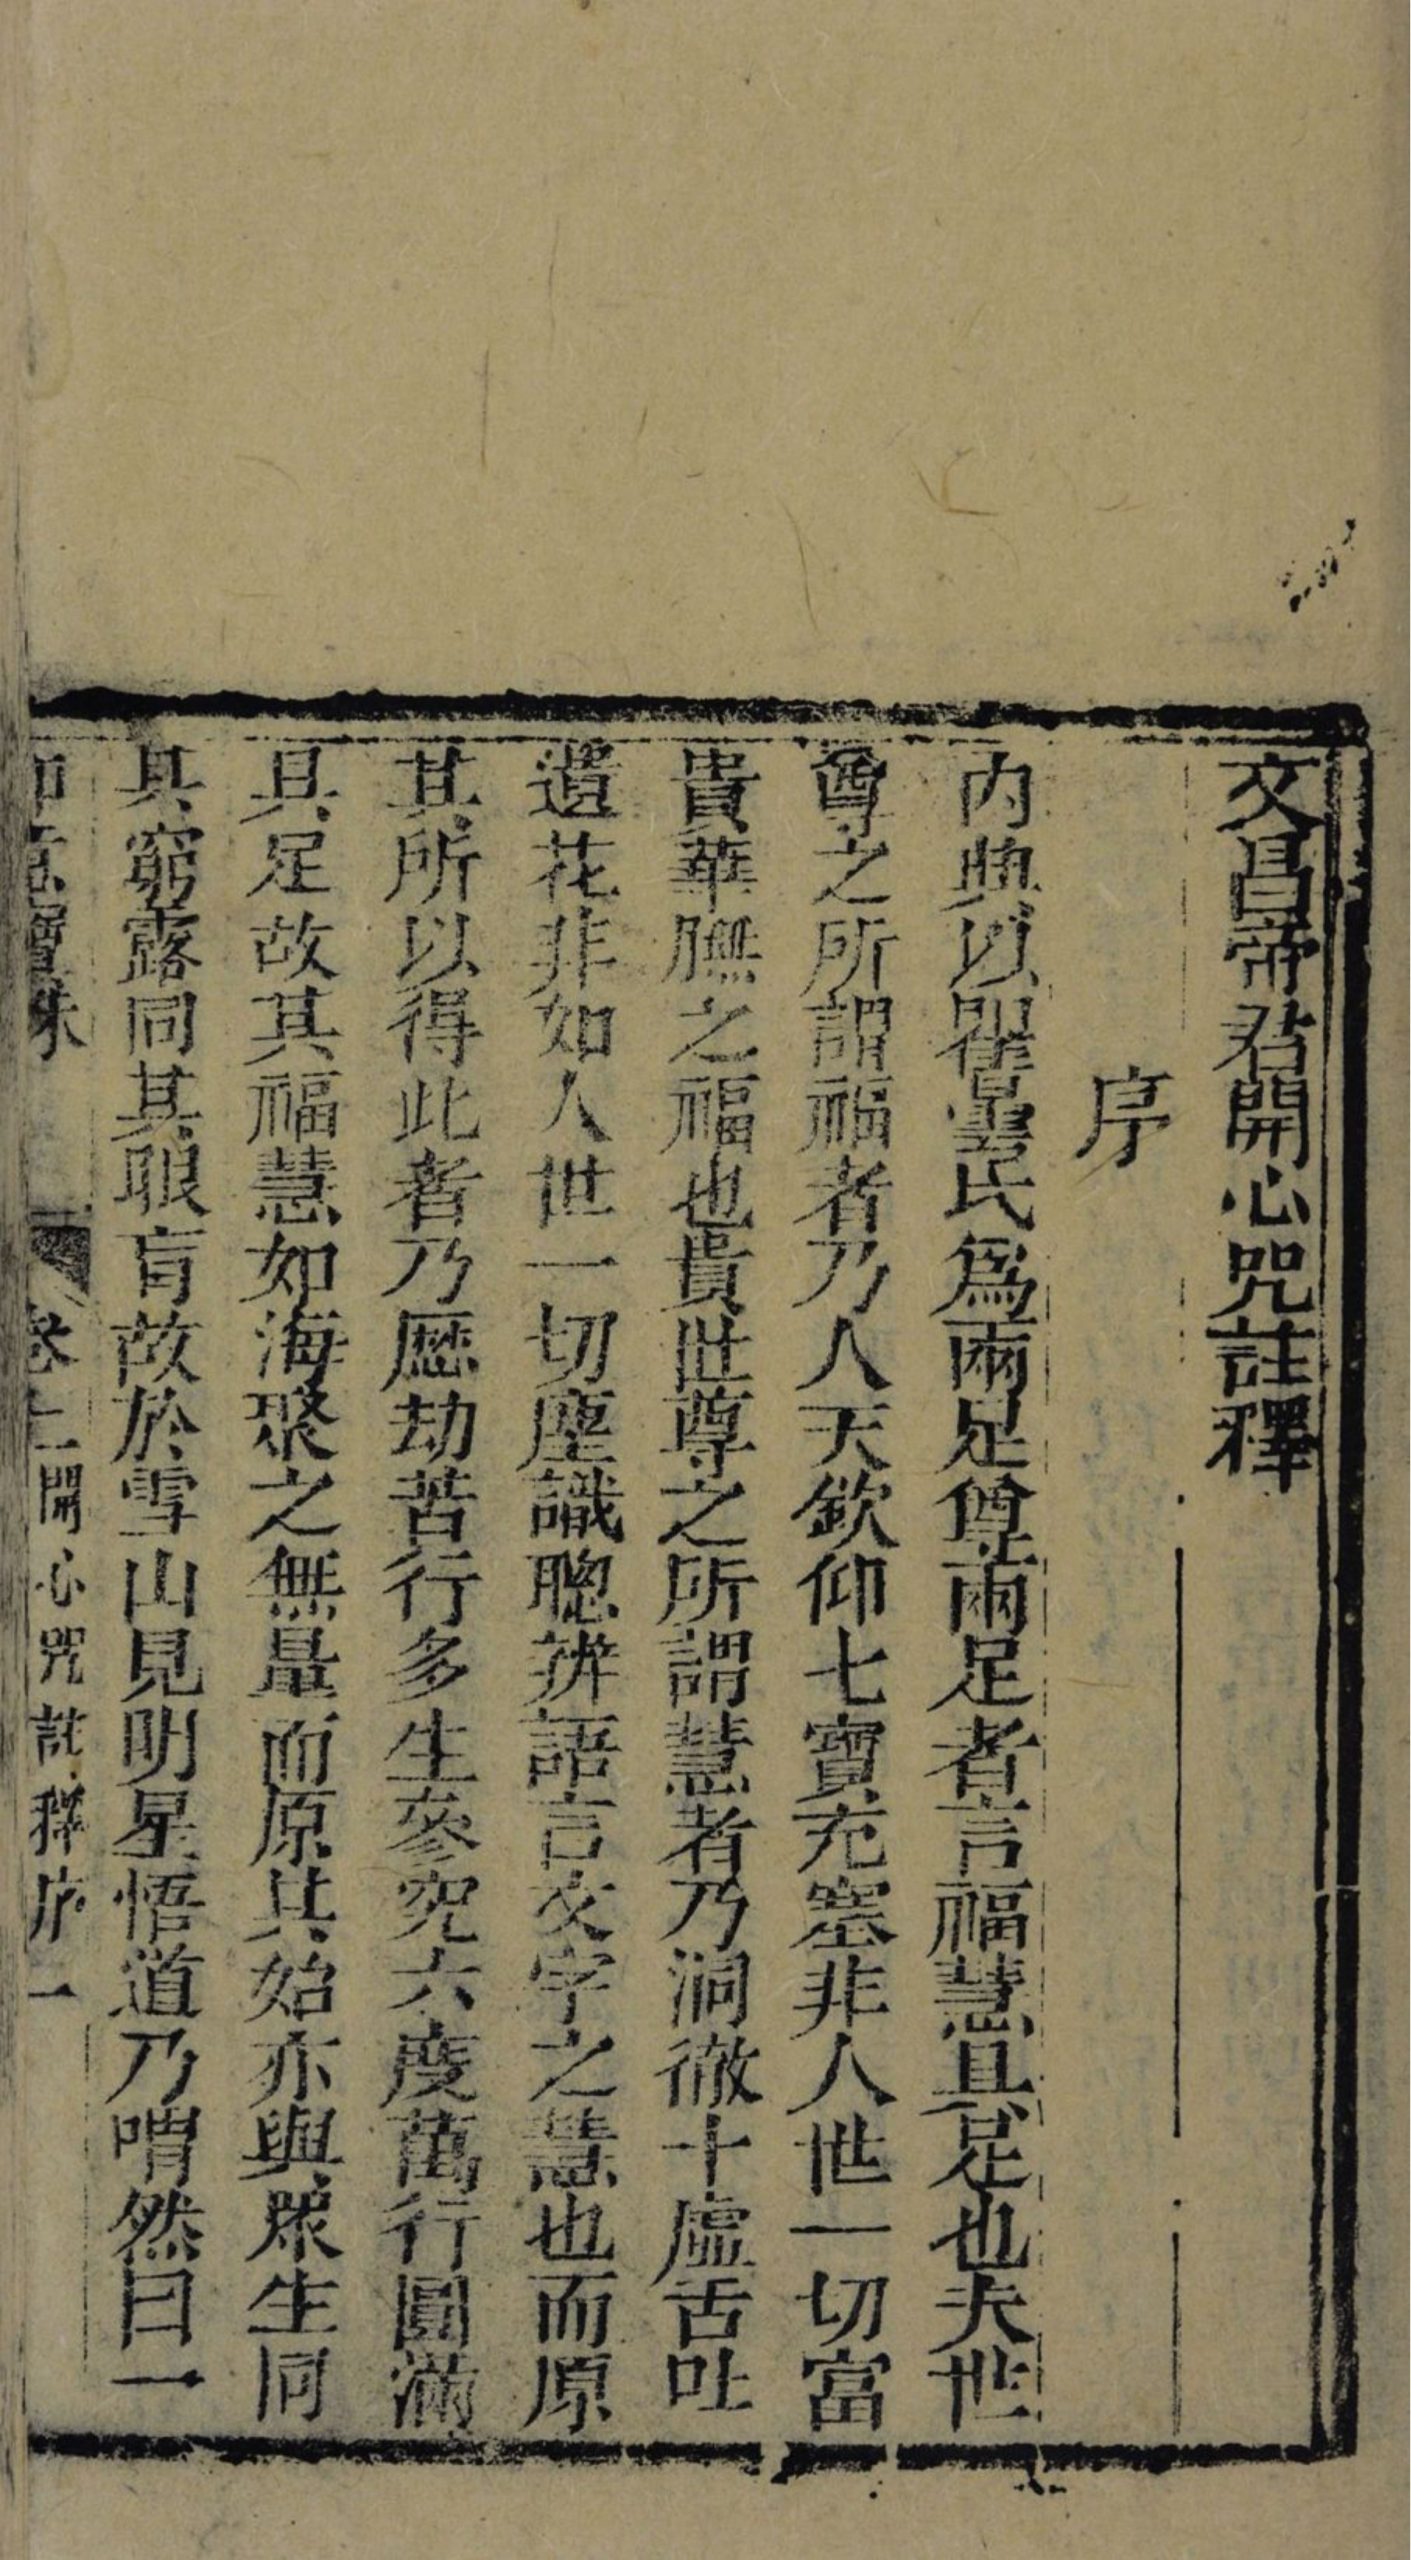 文昌帝君開心咒註釋
序
內典以瞿曇氏爲兩足尊兩足者言福慧具足也夫世
尊之所謂福者乃人天欽仰七寶充塞非人世一切富
貴華膴之福也貴世尊之所謂慧者乃洞徹十虛舌吐
遺花非如人世一切塵識聰辨語言文字之慧也而原
其所以得此者乃歷劫苦行多生參究六度萬行圓滿
具足故其福慧如海聚之無量而原其始亦與眾生同
其窮露同其眼盲故於雪山見明星悟道乃喟然曰一
寶珠 卷二開心咒註釋序 一